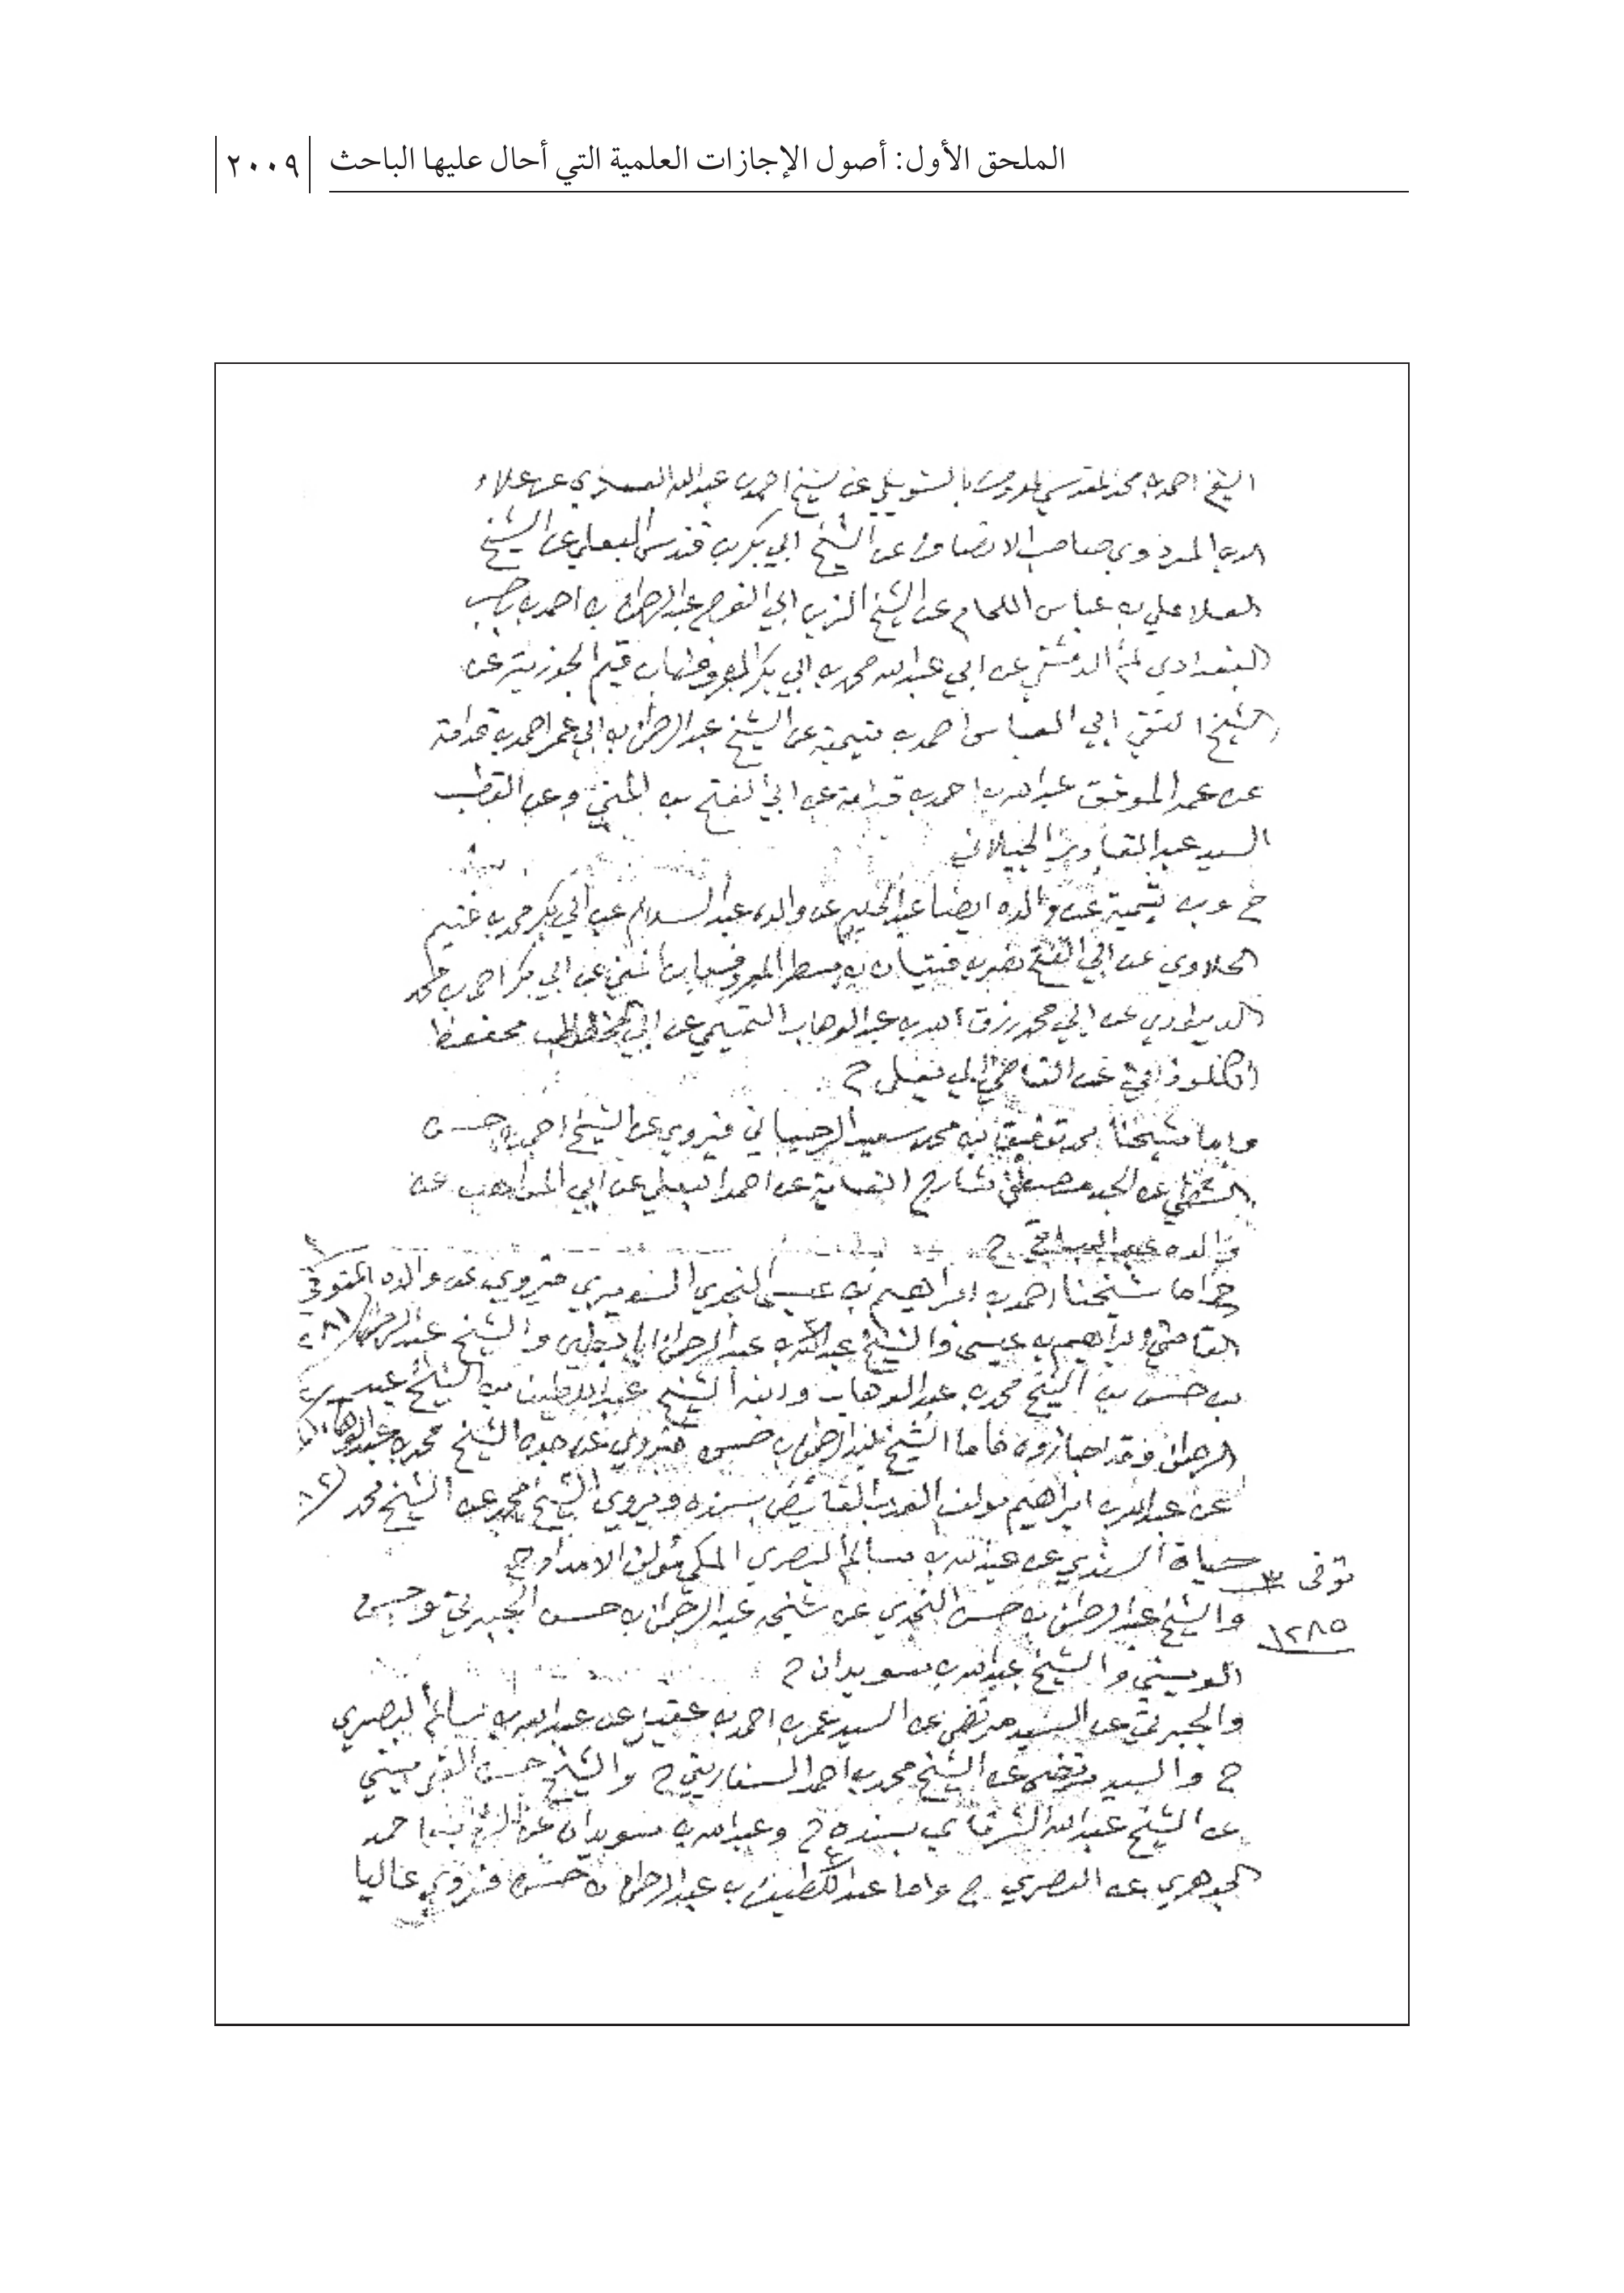 الملحق الأول: أصول الإجازات العلمية التي أحال عليها الباحث ٢٠٠٩
الشيخ احمد بن محمد المقدسي المعروف بالشويكي عن الشيخ احمد بن عبدالله العسكري عن علاء
الدين المرداوي صاحب الانصاف عن الشيخ ابي بكر بن قندس البعلي عن الشيخ
العلا علي بن عباس اللحام عن الشيخ الزين ابي الفرج عبدالرحمن بن احمد بن رجب
البغدادي ثم الدمشقي عن ابي عبدالله محمد بن ابي بكر المعروف بابن قيم الجوزية عن
الشيخ التقي ابي العباس احمد بن تيمية عن الشيخ عبدالرحمن بن ابي عمر احمد بن قدامة
عن عمه الموفق عبدالله بن احمد بن قدامة عن ابي الفتح بن المني وعن القطب
السيد عبدالقادر الجيلاني
ح وبن تيمية عن والده ايضا عبدالحليم عن والده عبدالسلام عن ابي بكر محمد بن غنيم
الحلاوي عن ابي الفتح نصر بن فتيان بن مطر المعروف بابن المني عن ابي بكر احمد بن محمد
الدينوري عن ابي محمد رزق الله بن عبدالوهاب التميمي عن ابي الخطاب محفوظ
الكلوذاني عن القاضي ابي يعلى ح
واما شيخنا محمد توفيق بن محمد سعيد الرحيباني فيروي عن الشيخ احمد بن حسن
الشطي عن الجد مصطفى شارح الغاية عن احمد البعلي عن ابي المواهب عن
والده عبدالباقي ح
ح واما شيخنا احمد بن ابراهيم بن عيسى النجدي السديري فيروي عن والده المتوفى
القاضي ابراهيم بن عيسى والشيخ عبدالله بن عبدالرحمن ابابطين والشيخ عبدالرحمن
بن حسن بن الشيخ محمد بن عبدالوهاب وابنه الشيخ عبداللطيف بن الشيخ عبد
الرحمن وقد اجازوه فاما الشيخ عبدالرحمن بن حسن فيروي عن جده الشيخ محمد بن عبدالوهاب
عن عبدالله بن ابراهيم مولف العذب الفائض بسنده ويروي الشيخ محمد عن الشيخ محمد
حياة السندي عن عبدالله بن سالم البصري المكي مؤلف الامداد ح
توفى
١٢٨٥
والشيخ عبدالرحمن بن حسن النجدي عن شيخه عبدالرحمن بن حسن الجبرتي وحسن
القويسني والشيخ عبدالله بن سويدان ح
والجبرتي عن السيد مرتضى عن السيد عمر بن احمد بن عقيل عن عبدالله بن سالم البصري
ح والسيد مرتضى عن الشيخ محمد بن احمد السفاريني ح والشيخ حسن القويسني
عن الشيخ عبدالله الشرقاوي بسنده ح وعبدالله بن سويدان عن الشيخ احمد
الجوهري عن البصري ح واما عبداللطيف بن عبدالرحمن بن حسن فيروي عاليا